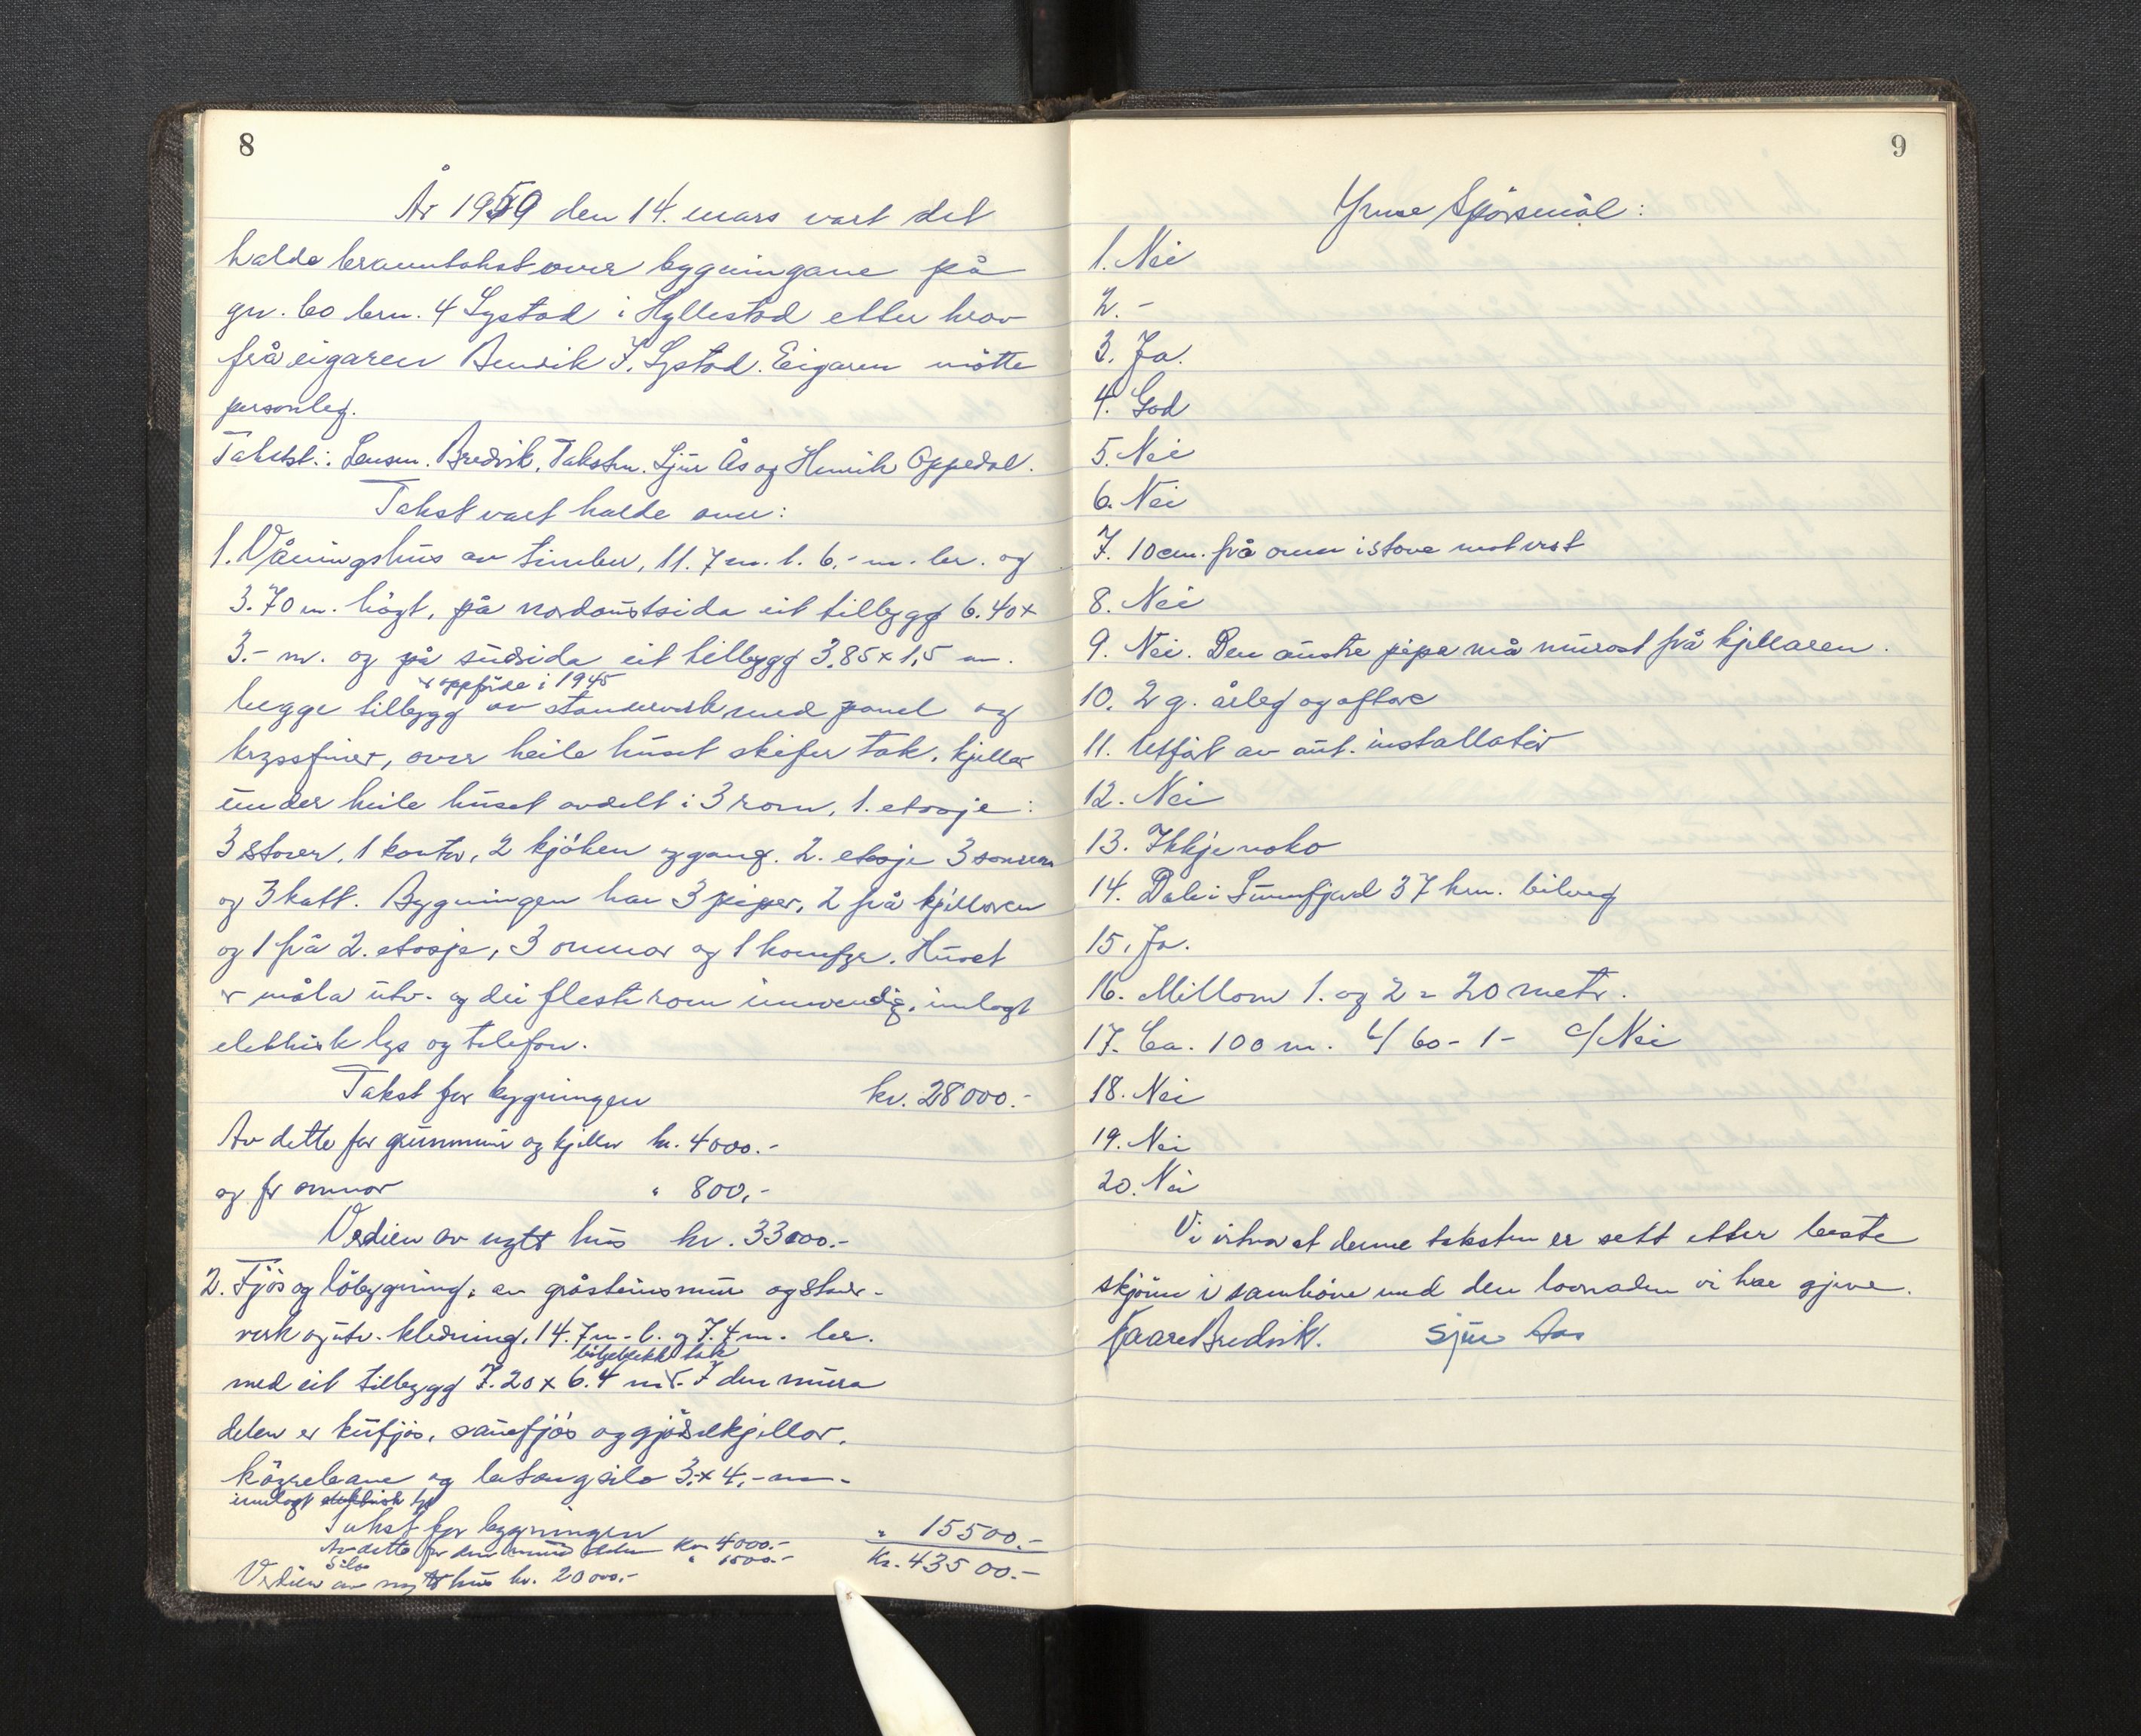 8
År 1959 den 14. mars vart det
halde branntakst over bygningane på
gnr. 60 brn. 4 Systad i Hyllestad etter krav
frå eigaren Bendik I. Systad. Eigaren møtte
personleg.
Takstst.: Lensm. Bredvik, Takstm. Sjur Ås og Henrik Oppedal.
Takst vart halde over:
1. Våningshus av timber, 11.7 m. l. 6.- m. br. og
3.70 m. högt, på nordaustsida eit tilbygg 6.40 x
3.- m. og på sudsida eit tilbygg 3,85 x 1,5 m.
er oppförde i 1945
begge tilbygg av standerverk med panel og
kryssfiner, over heile huset skifer tak, kjellar
under heile huset avdelt i 3 rom, 1. etasje:
3 stover, 1 kontor, 2 kjöken og gang. 2. etasje 3 soverom
og 3 kott. Bygningen har 3 piper, 2 frå kjellaren
og 1 frå 2. etasje, 3 omnar og 1 komfyr. Huset
er måla utv. og dei fleste rom innvendig, innlagt
elektrisk lys og telefon.
Takst for bygningen kr. 28000.-
Av dette for grunnmur og kjellar kr. 4000.-
og for omnar " 800,-
Verdien av nytt hus kr. 33000.-
2. Fjös og löbygning, av gråsteinsmur og stav-
verk og utv. kledning, 14.7 m. l. og 7.4 m. br.
bölgeblekk tak
med eit tilbygg 7.20 x 6.4 m. I den mura
delen er kufjös, sauefjös og gjödselkjellar,
köyrebane og betongsilo 3.- x 4.- m.
innlagt elektrisk lys
Takst for bygningen " 15500.-
Av dette for den mura delen kr. 4000.- Kr. 43500.-
Silo " 1500.-
Verdien av nytt hus kr. 20000.-
9
Ymse Spörsmål:
1. Nei
2. -
3. Ja.
4. God
5. Nei
6. Nei
7. 10 cm. frå omn i stova mot vest
8. Nei
9. Nei. Den austre pipa må murast frå kjellaren.
10. 2 g. årleg og oftare
11. Utfört av aut. installatör
12. Nei
13. Ikkje noko
14. Dale i Sunnfjord 37 km. bilveg
15. Ja.
16. Millom 1. og 2 = 20 metr.
17. Ca. 100 m. b/ 60 - 1 - c/ Nei
18. Nei
19. Nei
20. Nei
Vi vitnar at denne taksten er sett etter beste
skjönn i samhöve med den lovnaden vi har gjeve.
Kaare Bredvik. Sjur Aas